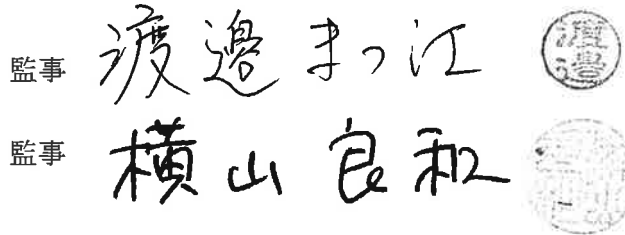 監事 渡邉まつ江 渡邉
監事 横山良和